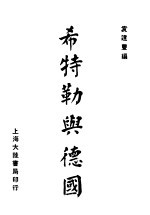 袁道豐編
希特勒與德國
上海大陸書局印行